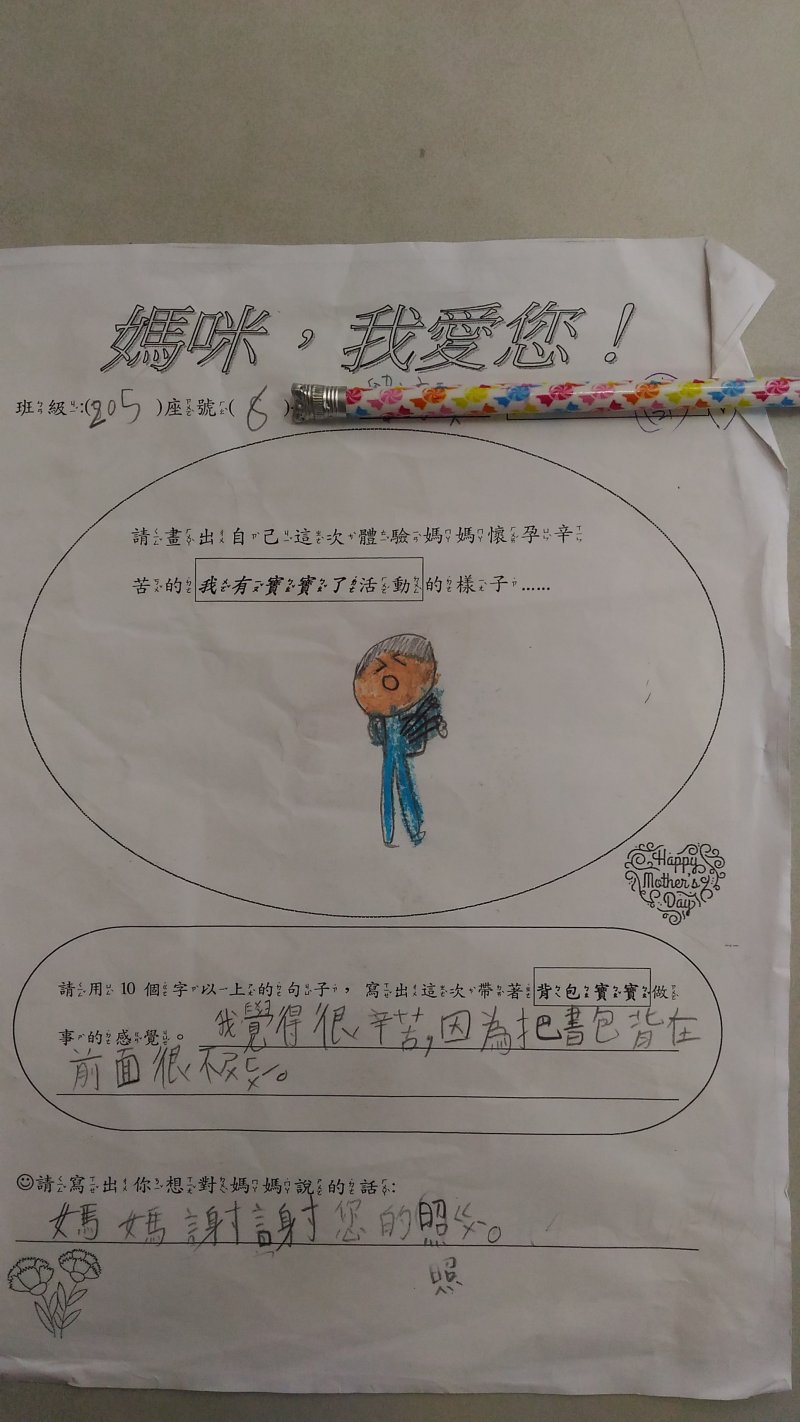 媽咪，我愛您！
班級:(205 )座號( 6 )
請畫出自己這次體驗媽媽懷孕辛
苦的我有寶寶了活動的樣子……
Happy
Mother's
Day
請用 10 個字以上的句子，寫出這次帶著背包寶寶做
事的感覺。我覺得很辛苦,因為把書包背在
前面很不ㄈㄨ。
☺請寫出你想對媽媽說的話:
媽媽謝謝您的照ㄍㄨ。
照